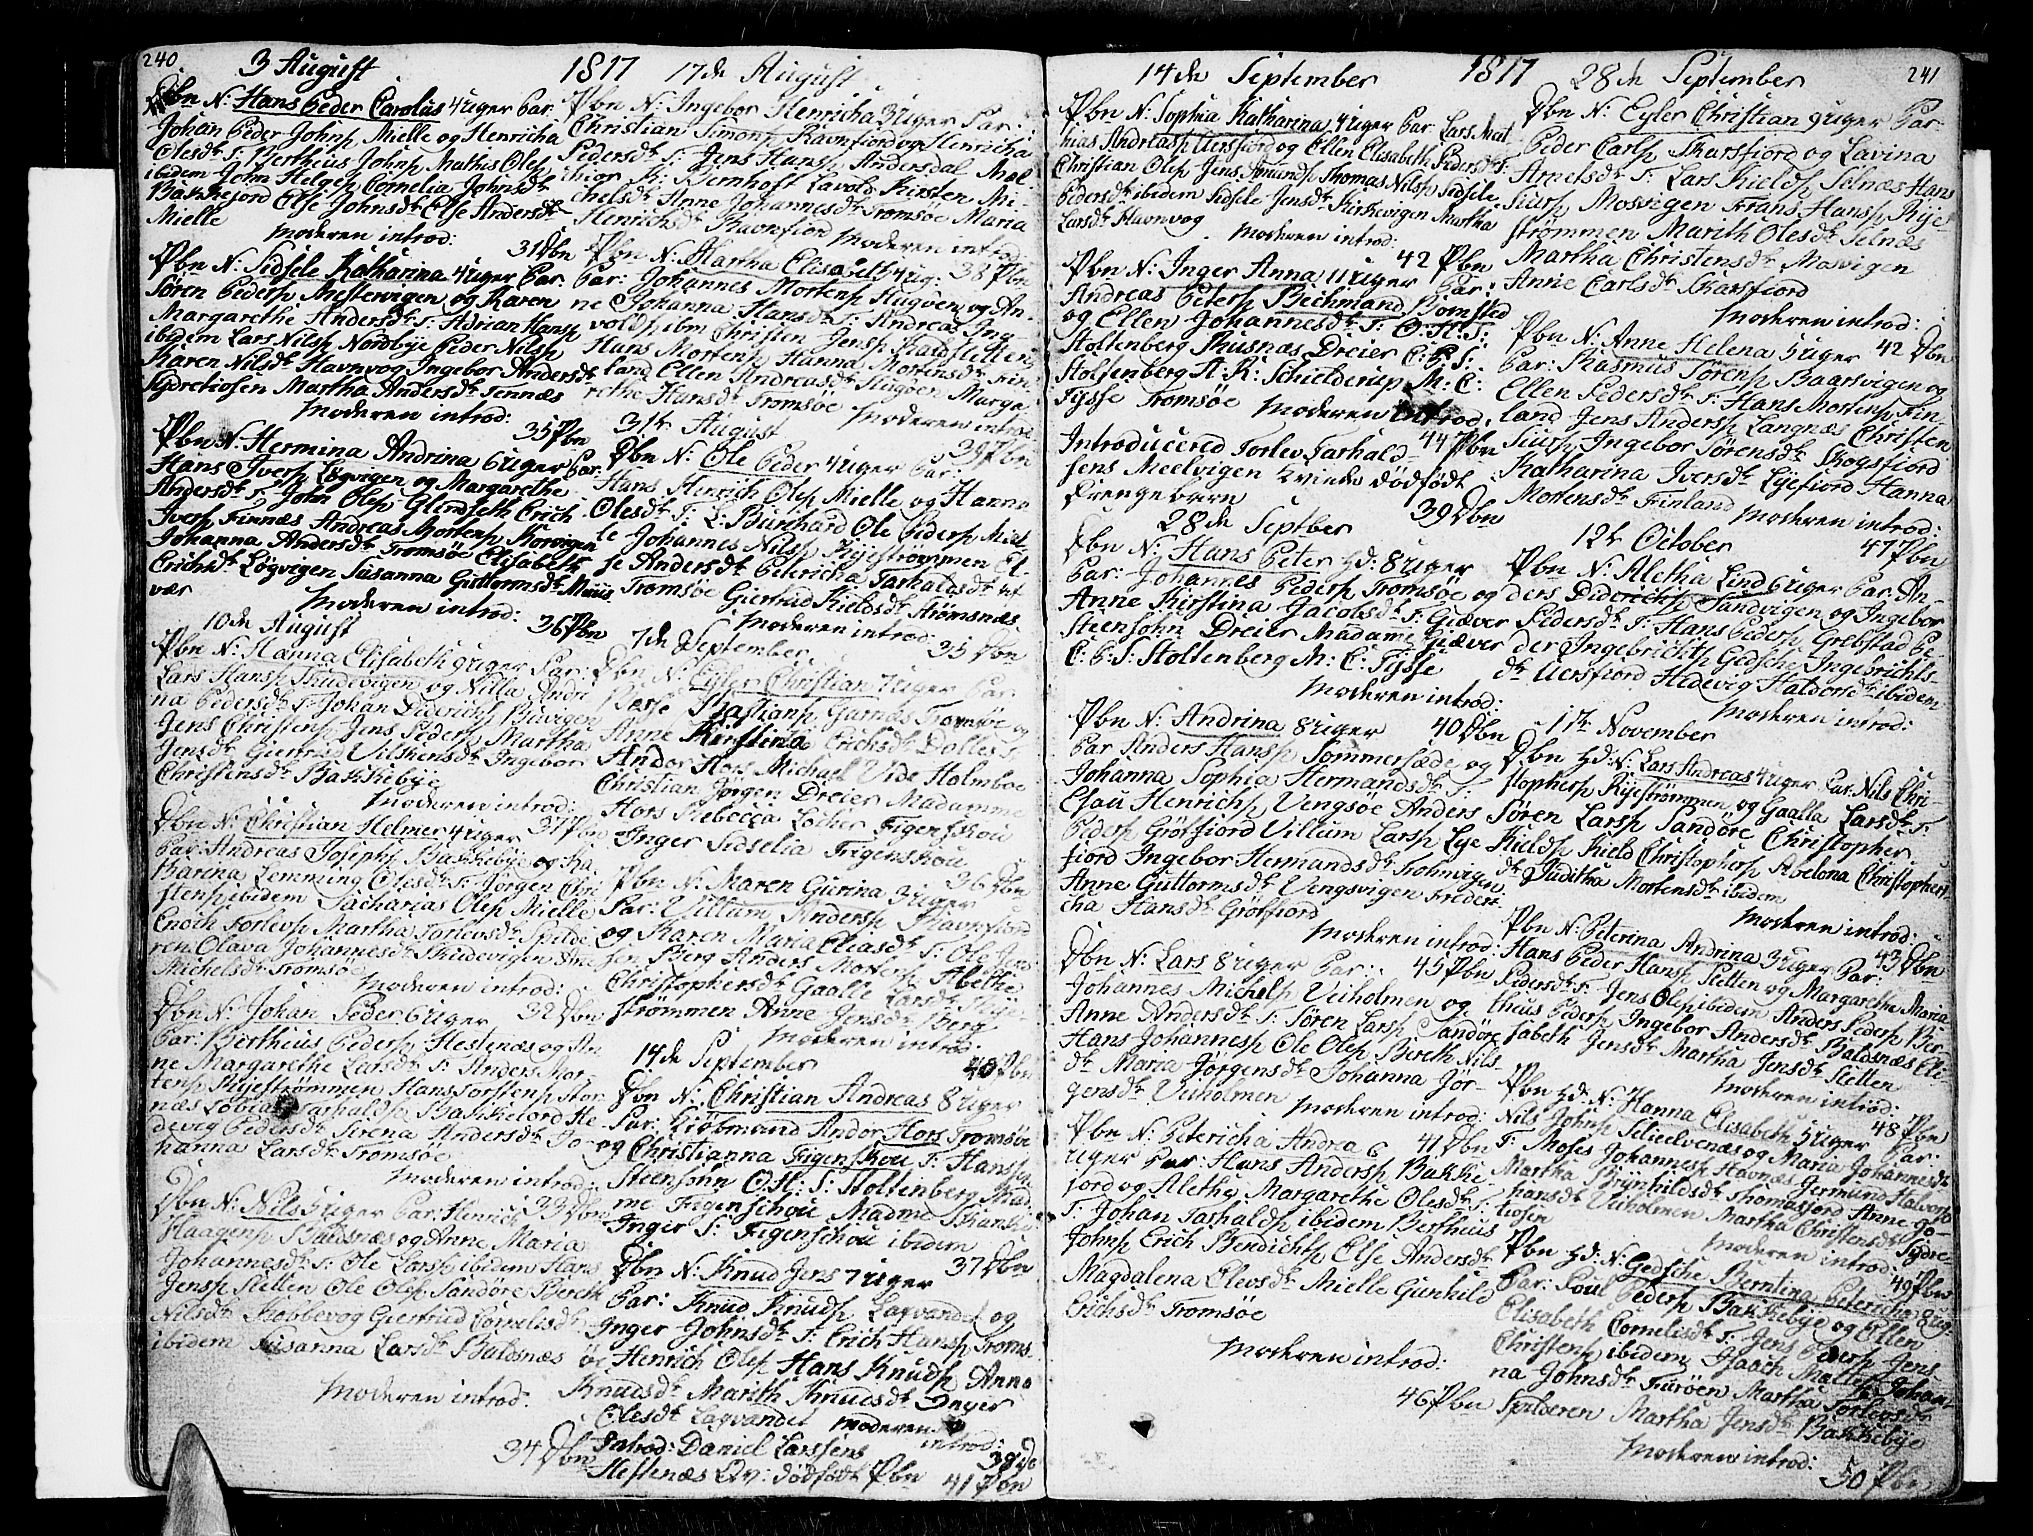 240
3 August
Dbn N: Hans Peder Carolus 4 Uger Par:
Johan Peder Johnsß Mielle og Henricha
Olesdr T: Bertheus Johnsß Mathis Olsß
ibidem John Helgesß Cornelia Johnsdr
Bakkejord Else Johnsdr Else Andersdr
Mielle
Moderen introd:
31 Dbn
Pbn N: Sidsele Katharina 4 Uger Par:
Søren Pedersß Mestervigen og Karen
Margarethe Andersdr T: Adrian Hansß
ibidem Lars Nilsß Nordbye Peder Nilsß
Karen Nilsdr Havnvog Ingebor Andersdr
Sydretiosen Martha Andersdr Tennæs
Moderen introd:
35 Pbn
Pbn N: Hermina Andrina 6 Uger Par:
Hans Iversß Løgvigen og Margarethe
Andersdr T: John Olsß Glindseth Erich
Iversß Finnæs Andreas Mortensß Korvigen
Johanna Andersdr Tromsøe Elisabeth
Erichsdr Løgvigen Susanna Guttormsdr Miuis
vær
Moderen introd:
36 Pbn
10de August
Pbn N: Hanna Elisabeth 9 Uger Par:
Lars Hansß Skudevigen og Nilla Andri
na Pedersdr T: Johan Diderichsß Buvigen
Jens Christensß Jens Pedersß Martha
Jensdr Giertrud Vilskensdr Ingebor
Christensdr Bakkebye
Moderen introd:
37 Pbn
Dbn N: Christian Helmer 4 Uger
Par: Andreas Josephsß Bakkebye og Ka
tharina Lemming Olesdr T: Jørgen Chri
stensß ibidem Zacharias Olesß Mielle
Enoch Torlevsß Martha Torlevsdr Spilde
ren Olava Johannesdr Skudevigen Ane
Michelsdr Tromsøe
Moderen introd:
32 Dbn
Dbn N: Johan Peder 6 Uger
Par: Bertheus Pedersß Hestenæs og An
ne Margarethe Larsdr T: Anders Mor-
tensß Ryestrømmen Hans Torstensß Stor
næs Tobias Tarhaldsß Bakkejord He
devig Pedersdr Sirena Andersdr Jo-
hanna Larsdr Tromsøe
Moderen introd:
33 Dbn
Dbn N: Nils 5 Uger Par: Henrich
Haagensß Baldsnæs og Anne Maria
Johannesdr T: Ole Larsß ibidem Hans
Jensß Sletten Ole Olsß Sandøre Bereth
Nilsdr Kobbevog Giertrud Cornelisdr
ibidem Susanna Larsdr Baldsnæs
Moderen introd:
34 Dbn
1817
17de August
Pbn N: Ingebor Henricha 3 Uger Par:
Christian Simonsß Ravnfiord og Henricha
Pedersdr T: Jens Hansß Andersdal Mal-
thior K: Bernhoft Lavold Kirsten Mi-
chelsdr Anne Johannesdr Tromsøe Maria
Henrichsdr Ravnfiord Moderen introd:
38 Pbn
Pbn N: Martha Elisabeth 4 Ug:
Par: Johannes Mortensß Hugøen og An-
ne Johanna Hansdr T: Andreas Ing-
voldsß ibm Christen Jensß Sletten
Hans Mortensß Hanna Mortensdr Fin-
land Ellen Andreasdr Hugøen Marga-
rethe Hansdr Tromsøe Moderen introd:
39 Pbn
31te August
Dbn N: Ole Peder 4 Uger Par:
Hans Henrich Olsß Mielle og Hanna
Olesdr T: L: Burchard Ole Pedersß Miel-
le Johannes Nilsß Ryestrømmen El-
se Andersdr Petericha Tarhaldsdr
Tromsøe Giertrud Kieldsdr Strømsnæs
Moderen introd:
35 Dbn
7de September
Dbn N: Eyler Christian 7 Uger Par:
Bastiansß Garnæs Tromsøe og
Anne Kirstina Erichsdr Dolles
Andor Hors Michael Vide Holmboe
Christian Jørgen Dreier Madamme
Hors Rebecca Locher Figenskou
Inger Sidselia Figenskou
36 Dbn
Pbn N: Maren Gurina 3 Uger
Par: Villum Andersß Ravnfiord
og Karen Maria Eliasdr T: Ole Jen-
sen Berg Anders Mortensß Abethe
Christophersdr Gaalle Larsdr Rye-
strømmen Anne Jensdr Berg
Moderen introd:
40 Pbn
14de September
Dbn N: Christian Andreas 8 Uger
Par: Kiöbmand Andor Hors Tromsøe
og Christianna Figenskou T: Hans
Steensohn O: H: S: Stoltenberg Mad
me Figenschou Madme Skanke
Inger S: Figenschou ibidem
37 Dbn
Dbn N: Knud Jens 7 Uger
Par: Knud Knudsß Lagvandet og
Inger Johnsdr T: Erich Hansß Troms-
øe Henrich Olsß Hans Knudsß Anna
Knudsdr Marith Knudsdr Inger
Olesdr Lagvandet Moderen
introd:
38 Db
Introd: Daniel Larssens
Hestenæs Qv: dödfødt Pbn
41 Pbn
14de September
Pbn N: Sophia Katharina 4 Uger Par: Lars Mat
thias Andreasß Uersfiord og Ellen Elisabeth Pedersdr T:
Christian Olsß Jens Amundsß Thomas Nilsß Sidsele
Pedersdr ibidem Sidsele Jensdr Kirkevigen Martha
Larsdr Havnvog
Moderen introd:
42 Pbn
Pbn N: Inger Anna 11 Uger Par:
Andreas Petersß Bechmand Biomsted
og Ellen Johannesdr T: O: H: S:
Stoltenberg Rusnæs Dreier C: P: S:
Stoltenberg A: R: Schielderup M: C:
Fysse Tromsøe Moderen introd:
Introducered Torlev Tarhald-
44 Pbn
sens Meelvigen Kvinde dödfødt
Drengebarn
39 Dbn
28de Septber
Dbn N: Hans Peter Hd: 8 Uger
Par: Johannes Pedersß Tromsøe og
Anne Kirstina Jacobsdr T: Giæver
Steensohn Dreier Madame Giæver
C: P: S: Stoltenberg M: C: Fysse
Moderen introd:
40 Dbn
Pbn N: Andrina 8 Uger
Par Anders Hansß Sommersæde og
Johanna Sophia Hermandsdr T:
Esau Henrichsß Vengsøe Anders
Pedersß Grötfiord Villum Larsß Lye
fiord Ingebor Hermandsdr Tromvigen
Anne Guttormsdr Vengsvigen Frederi
cha Hansdr Grötfiord
Moderen introd:
45 Pbn
Dbn N: Lars 8 Uger Par:
Johannes Michelsß Veiholmen og
Anne Andersdr T: Søren Larsß Sandøre
Hans Johannesß Ole Olsß Bereth Nils-
dr Maria Jörgensdr Johanna Jör-
gensdr Veiholmen Moderen introd:
41 Dbn
Pbn N: Petericha Andrea 6
Uger Par: Hans Andersß Bakke-
jord og Alethe Margarethe Olesdr
T: Johan Tarhaldsß ibidem Berthius
Johnsß Erich Bendichsß Else Andersdr
Magdalena Elevsdr Mielle Gunhild
Erichsdr Tromsøe
Moderen introd:
46 Pbn
1817
28de September
241
Dbn N: Eyler Christian 9 Uger Par:
Peder Carlsß Skarsfiord og Lavina
Arnetsdr T: Lars Kieldsß Selnæs Hans
Siursß Mosvigen Frans Hansß Rye-
strømmen Marith Olesdr Selnæs
Martha Christensdr Mosvigen
Anne Carlsdr Skarsfiord
Moderen introd:
42 Dbn
Pbn N: Anne Helena 5 Uger
Par: Rasmus Sørensß Baarsvigen og
Ellen Pedersdr T: Hans Mortensß Fin-
land Jens Andersß Langnæs Christen
Siursß Ingebor Sørensdr Skogsfiord
Katharina Iversdr Lyefiord Hanna
Mortensdr Finland Moderen introd:
47 Pbn
12te October
Pbn N: Aletha Lind 6 Uger Par: An-
ders Diderichsß Sandvigen og Ingebor
Pedersdr T: Hans Pedersß Grebstad Pe-
der Ingebrichtsß Gedsche Ingebrichts-
dr Uersfiord Hedevig Haldorsdr ibidem
Moderen introd:
1te November
Dbn Hd: N: Lars Andreas 4 Uger Par: Nils Chri-
stophersß Ryestrømmen og Gaalla Larsdr T:
Søren Larsß Sandøre Christopher
Kieldsß Kield Christophersß Abelona Christophers
dr Juditha Mortensdr ibidem
Moderen introd:
43 Dbn
Pbn N: Peterina Andrina 3 Uger Par:
Hans Peder Hansß Sletten og Margarethe Maria
Pedersdr T: Jens Olsß ibidem Anders Pedersß Ber-
theus Pedersß Ingebor Andersdr Baldsnæs Eli-
sabeth Jensdr Martha Jensdr Sletten
Moderen introd:
48 Pbn
Pbn Hd: N: Hanna Elisabeth 5 Uger Par:
Nils Johnsß Selielvenæs og Maria Johannesdr
T: Moses Johannesß Havnæs Germund Halvorsß
Martha Brynhildsdr Thomasjord Anne Jo-
hansdr Veiholmen Martha Christensdr Sydre-
tiosen
Moderen introd:
49 Pbn
Pbn Hd: N: Gedsche Berntina Petericha 9 Ug:
Par: Poul Pedersß Bakkebye og Ellen
Elisabeth Cornelisdr T: Jens Pedersß Jens
Christensß ibidem Isach Johan-
na Johnsdr Furøen Martha Torlevsdr
Spilderen Martha Jensdr Bakkebye
Moderen introd:
50 Pbn